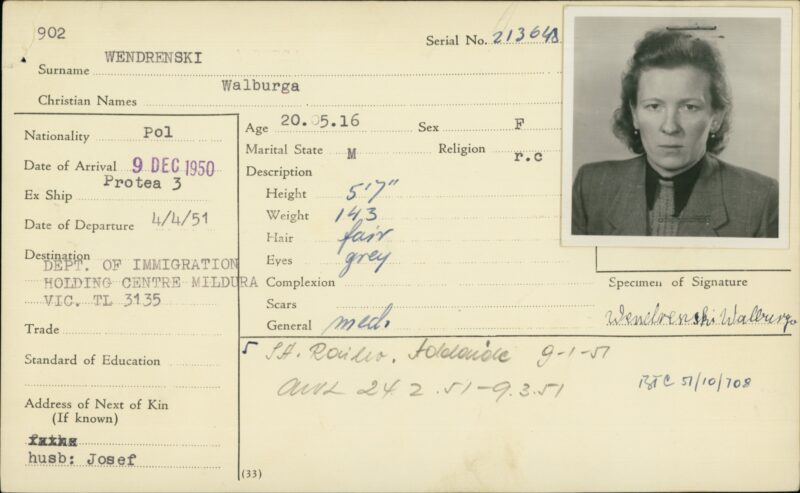 902
Serial No. 213648
WENDRENSKI
Surname
Walburga
Christian Names
Nationality Pol
Date of Arrival 9 DEC 1950
Protea 3
Ex Ship
Date of Departure 4/4/51
Destination
DEPT. OF IMMIGRATION
HOLDING CENTRE MILDURA
VIC. TL 3135
Trade
Standard of Education
Address of Next of Kin
(If known)
husb: Josef
Age 20.05.16 Sex F
Marital State M Religion r.c
Description
Height 5'7"
Weight 143
Hair fair
Eyes grey
Complexion
Scars
General med.
Specimen of Signature
Wendrenski Walburga
5 SA. Railw. Adelaide 9-1-51
AWL 24.2.51-9.3.51
BTC 51/10/708
(33)